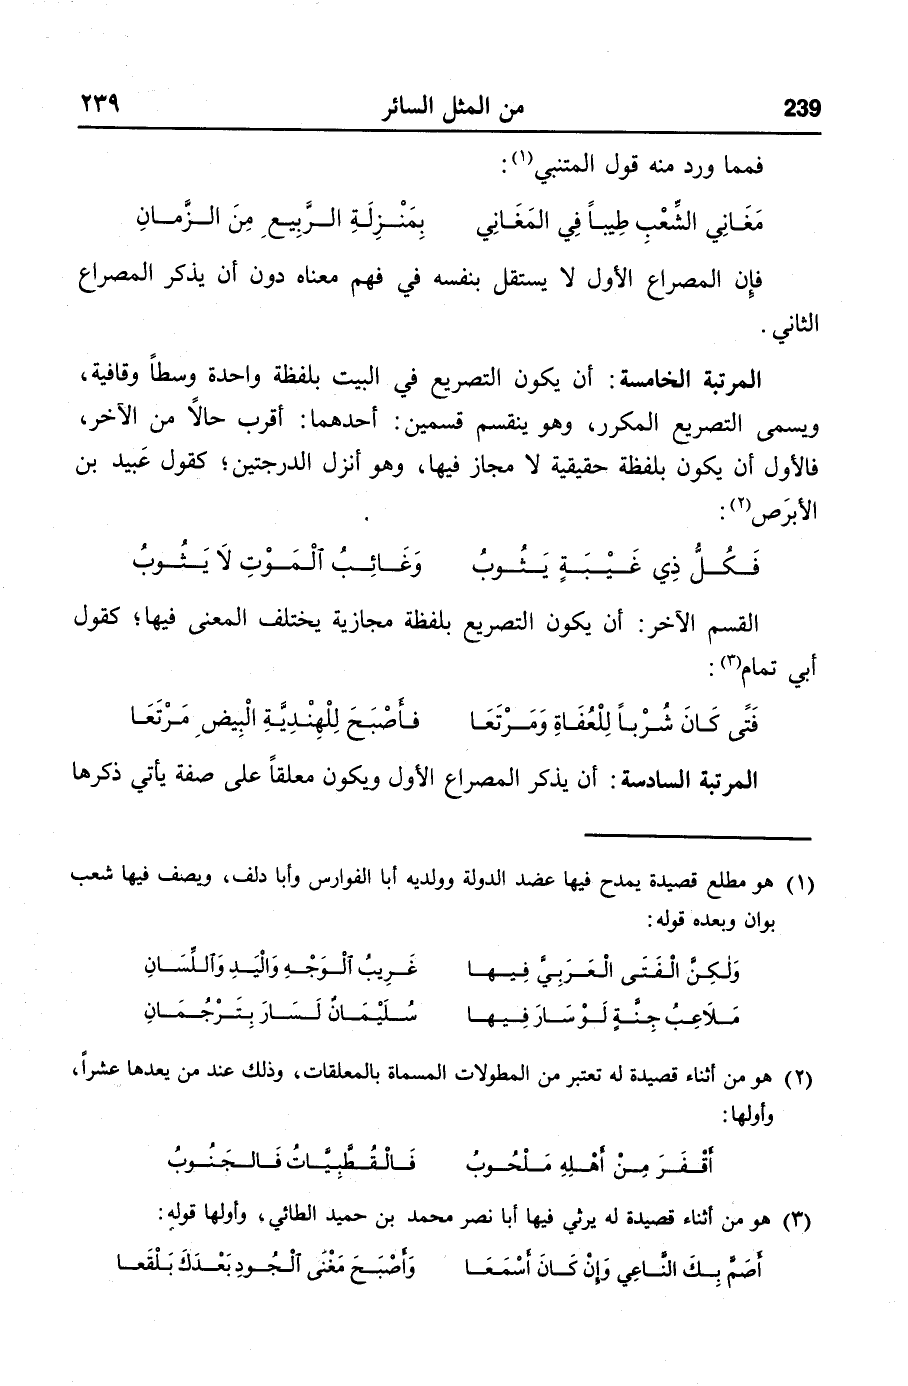 239 من المثل السائر ٢٣٩
فمما ورد منه قول المتنبي(١):
مَغَانِي الشِّعْبِ طِيباً فِي المَغَانِي بِمَنْزِلَةِ الرَّبِيعِ مِنَ الزَّمانِ
فإن المصراع الأول لا يستقل بنفسه في فهم معناه دون أن يذكر المصراع
الثاني .
المرتبة الخامسة: أن يكون التصريع في البيت بلفظة واحدة وسطاً وقافية،
ويسمى التصريع المكرر، وهو ينقسم قسمين: أحدهما: أقرب حالاً من الآخر،
فالأول أن يكون بلفظة حقيقية لا مجاز فيها، وهو أنزل الدرجتين؛ كقول عَبيد بن
الأبرَص(٢):
فَكُلُّ ذِي غَيْبَةٍ يَثُوبُ وَغَائِبُ ٱلْمَوْتِ لَا يَثُوبُ
القسم الآخر: أن يكون التصريع بلفظة مجازية يختلف المعنى فيها؛ كقول
أبي تمام(٣):
فَتًى كَانَ شُرْباً لِلْعُفَاةِ وَمَرْتَعَا فأَصْبَحَ لِلْهِنْدِيَّةِ الْبِيضِ مَرْتَعَا
المرتبة السادسة: أن يذكر المصراع الأول ويكون معلقاً على صفة يأتي ذكرها
(١) هو مطلع قصيدة يمدح فيها عضد الدولة وولديه أبا الفوارس وأبا دلف، ويصف فيها شعب
بوان وبعده قوله:
وَلَكِنَّ الْفَتَى الْعَرَبِيَّ فِيهَا غَرِيبُ ٱلْوَجْهِ وَالْيَدِ وَٱللِّسَانِ
مَلَاعِبُ جِنَّةٍ لَوْ سَارَ فِيهَا سُلَيْمَانٌ لَسَارَ بِتَرْجُمَانِ
(٢) هو من أثناء قصيدة له تعتبر من المطولات المسماة بالمعلقات، وذلك عند من يعدها عشراً،
وأولها:
أَقْفَرَ مِنْ أَهْلِهِ مَلْحُوبُ فَالْقُطَّبِيَّاتُ فَالجَنُوبُ
(٣) هو من أثناء قصيدة له يرثي فيها أبا نصر محمد بن حميد الطائي، وأولها قوله:
أَصَمَّ بِكَ النَّاعِي وَإِنْ كَانَ أَسْمَعَا وَأَصْبَحَ مَغْنَى ٱلْجُودِ بَعْدَكَ بَلْقَعا